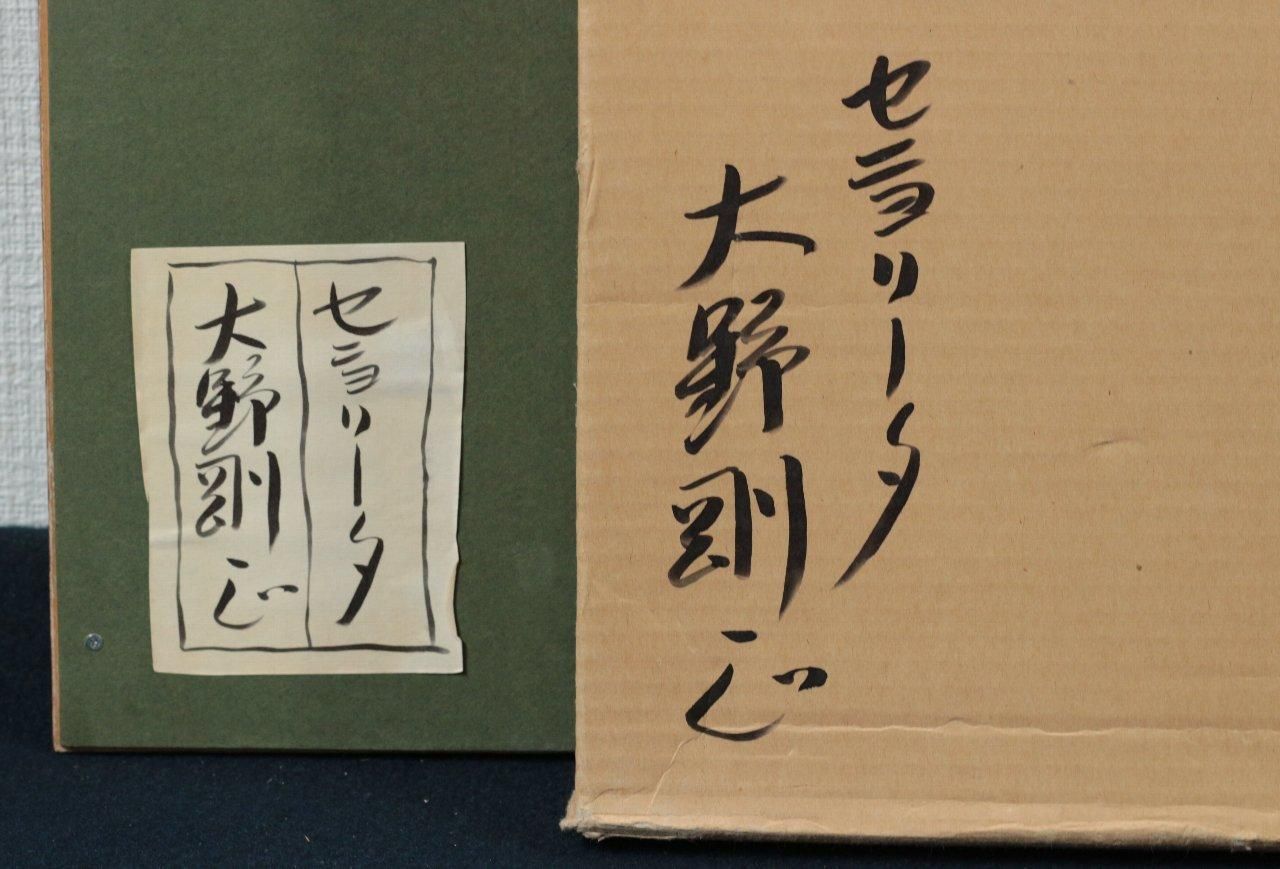 セニョリータ
大野剛正
セニョリータ
大野剛正